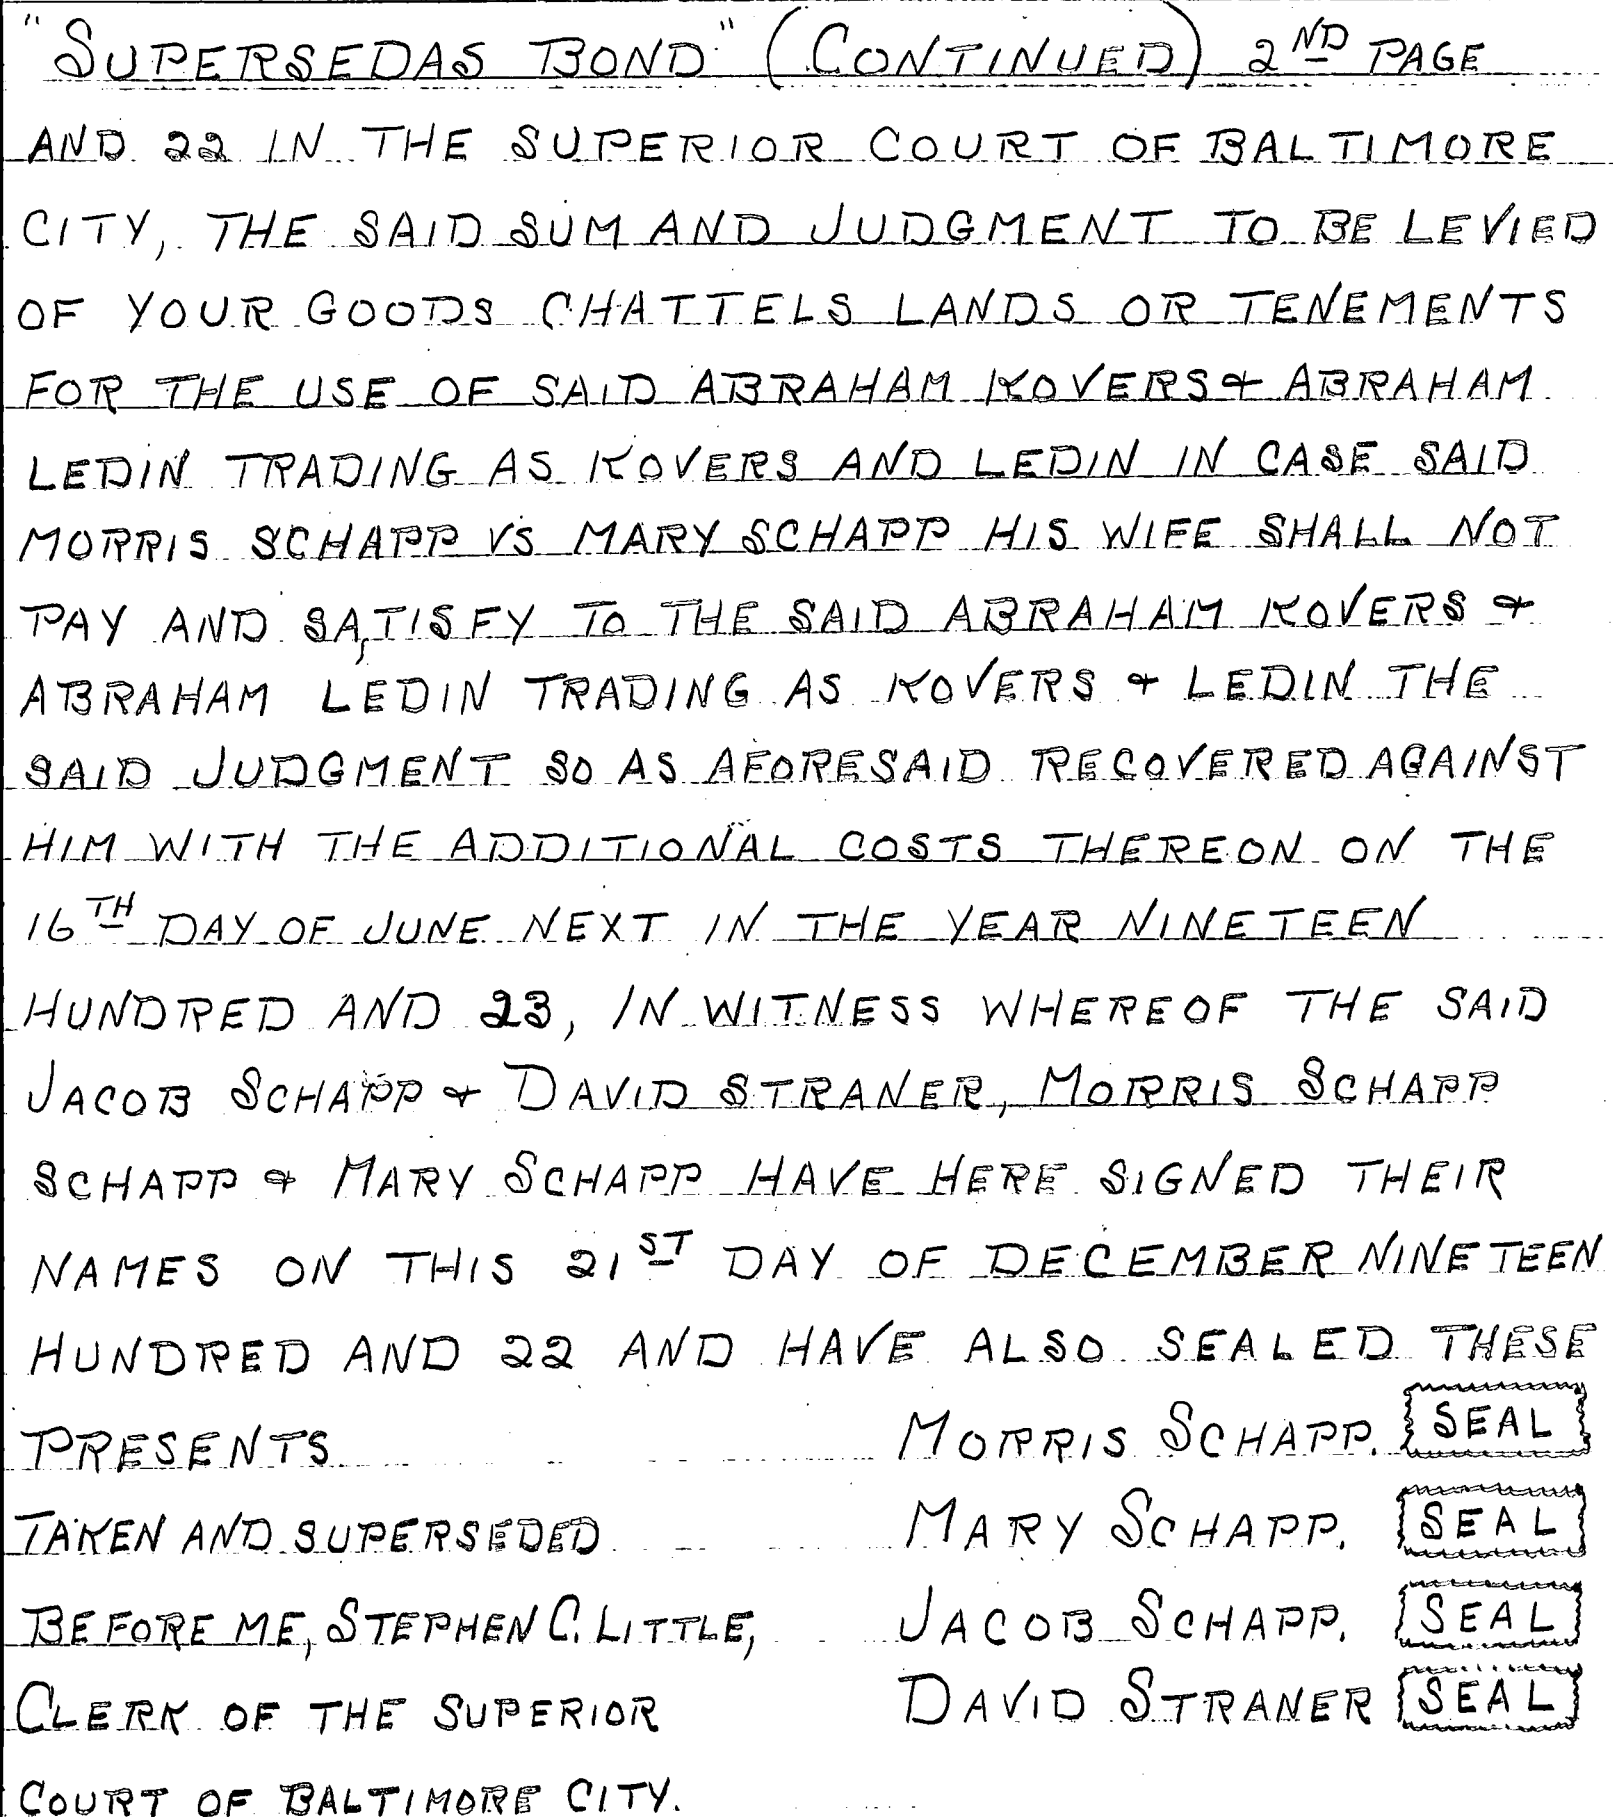 "SUPERSEDAS BOND" (CONTINUED) 2ND PAGE
AND 22 IN THE SUPERIOR COURT OF BALTIMORE
CITY, THE SAID SUM AND JUDGMENT TO BE LEVIED
OF YOUR GOODS CHATTELS LANDS OR TENEMENTS
FOR THE USE OF SAID ABRAHAM KOVERS & ABRAHAM
LEDIN TRADING AS KOVERS AND LEDIN IN CASE SAID
MORRIS SCHAPP VS MARY SCHAPP HIS WIFE SHALL NOT
PAY AND SATISFY TO THE SAID ABRAHAM KOVERS &
ABRAHAM LEDIN TRADING AS KOVERS & LEDIN THE
SAID JUDGMENT SO AS AFORESAID RECOVERED AGAINST
HIM WITH THE ADDITIONAL COSTS THEREON ON THE
16TH DAY OF JUNE NEXT IN THE YEAR NINETEEN
HUNDRED AND 23, IN WITNESS WHEREOF THE SAID
JACOB SCHAPP & DAVID STRANER, MORRIS SCHAPP
SCHAPP & MARY SCHAPP HAVE HERE SIGNED THEIR
NAMES ON THIS 21ST DAY OF DECEMBER NINETEEN
HUNDRED AND 22 AND HAVE ALSO SEALED THESE
PRESENTS MORRIS SCHAPP. SEAL
TAKEN AND SUPERSEDED MARY SCHAPP. SEAL
BEFORE ME, STEPHEN C. LITTLE, JACOB SCHAPP. SEAL
CLERK OF THE SUPERIOR DAVID STRANER SEAL
COURT OF BALTIMORE CITY.